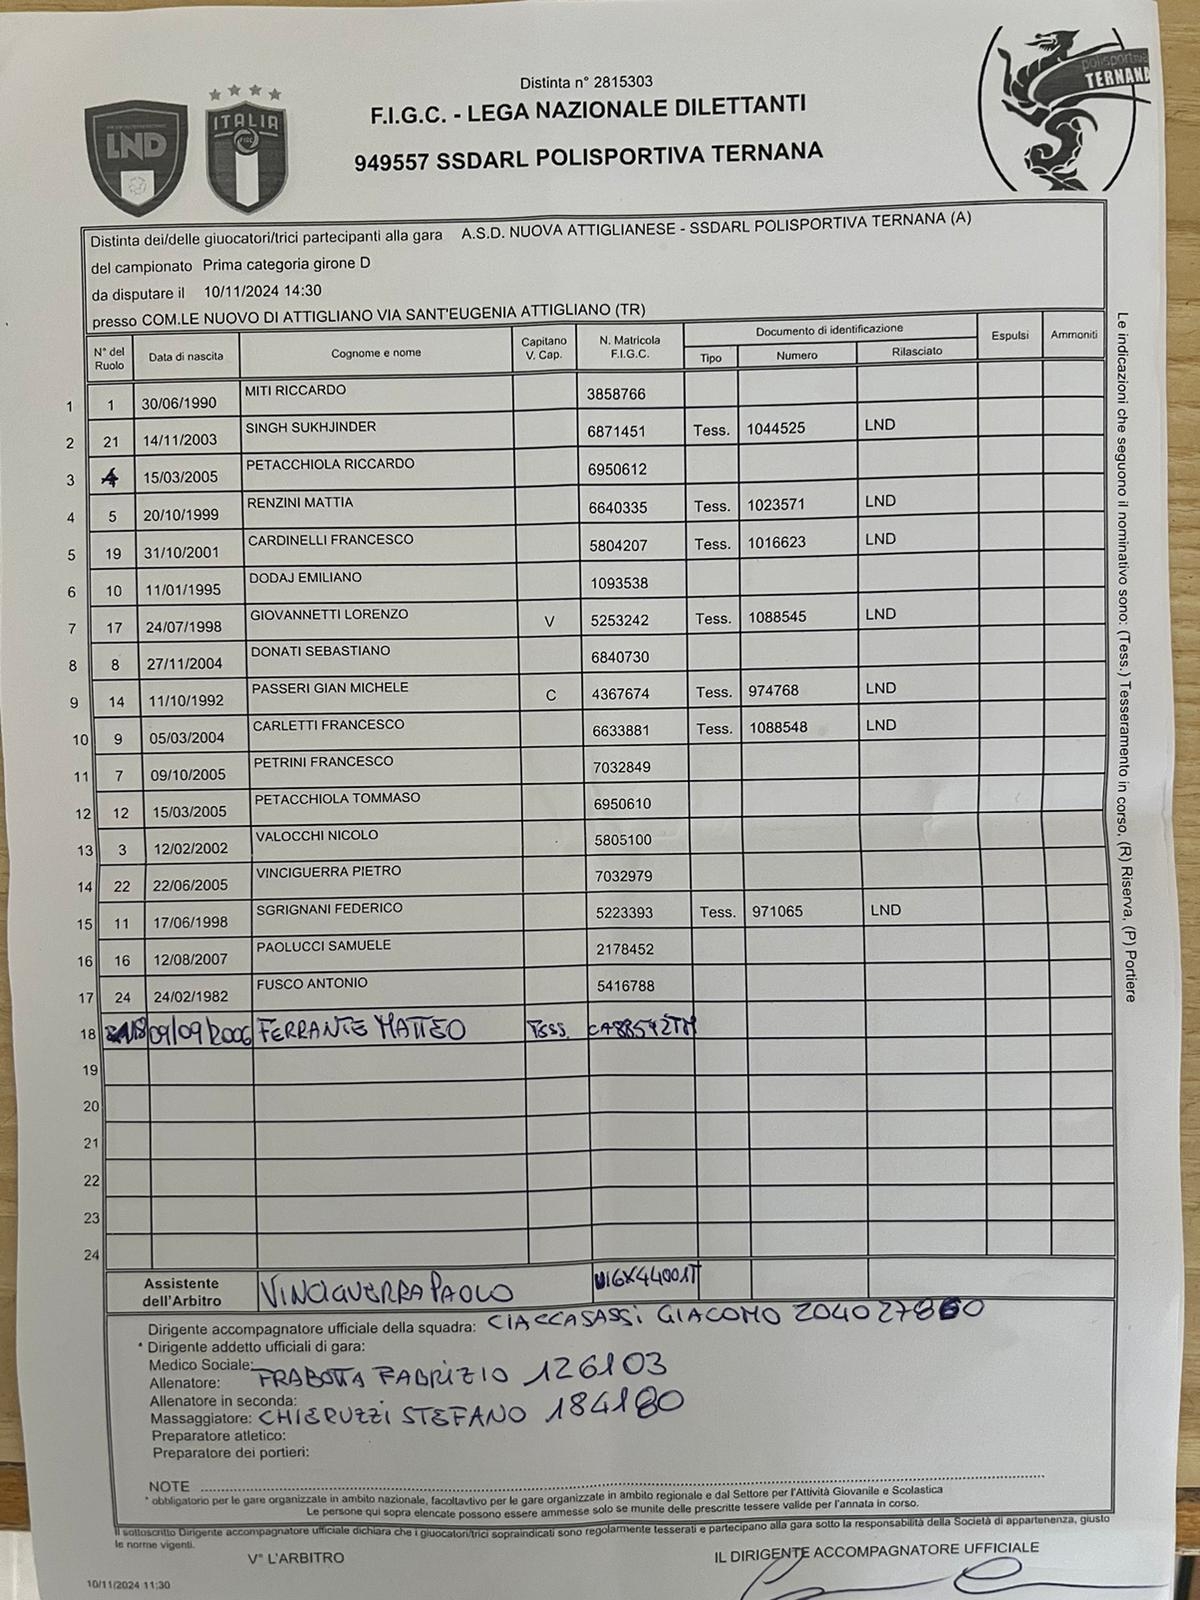 Distinta n° 2815303
F.I.G.C. - LEGA NAZIONALE DILETTANTI
949557 SSDARL POLISPORTIVA TERNANA
LND
ITALIA
FIGC
polisportiva
TERNANA
Distinta dei/delle giuocatori/trici partecipanti alla gara A.S.D. NUOVA ATTIGLIANESE - SSDARL POLISPORTIVA TERNANA (A)
del campionato Prima categoria girone D
da disputare il 10/11/2024 14:30
presso COM.LE NUOVO DI ATTIGLIANO VIA SANT'EUGENIA ATTIGLIANO (TR)
N° del Ruolo Data di nascita Cognome e nome Capitano V. Cap. N. Matricola F.I.G.C. Documento di identificazione Tipo Numero Rilasciato Espulsi Ammoniti
1 1 30/06/1990 MITI RICCARDO 3858766
2 21 14/11/2003 SINGH SUKHJINDER 6871451 Tess. 1044525 LND
3 4 15/03/2005 PETACCHIOLA RICCARDO 6950612
4 5 20/10/1999 RENZINI MATTIA 6640335 Tess. 1023571 LND
5 19 31/10/2001 CARDINELLI FRANCESCO 5804207 Tess. 1016623 LND
6 10 11/01/1995 DODAJ EMILIANO 1093538
7 17 24/07/1998 GIOVANNETTI LORENZO V 5253242 Tess. 1088545 LND
8 8 27/11/2004 DONATI SEBASTIANO 6840730
9 14 11/10/1992 PASSERI GIAN MICHELE C 4367674 Tess. 974768 LND
10 9 05/03/2004 CARLETTI FRANCESCO 6633881 Tess. 1088548 LND
11 7 09/10/2005 PETRINI FRANCESCO 7032849
12 12 15/03/2005 PETACCHIOLA TOMMASO 6950610
13 3 12/02/2002 VALOCCHI NICOLO 5805100
14 22 22/06/2005 VINCIGUERRA PIETRO 7032979
15 11 17/06/1998 SGRIGNANI FEDERICO 5223393 Tess. 971065 LND
16 16 12/08/2007 PAOLUCCI SAMUELE 2178452
17 24 24/02/1982 FUSCO ANTONIO 5416788
18 18 09/09/2006 FERRANTE MATTEO Tess.
19
20
21
22
23
24
Assistente dell'Arbitro VINCIGUERRA PAOLO
Dirigente accompagnatore ufficiale della squadra: CIACCASASSI GIACOMO
* Dirigente addetto ufficiali di gara:
Medico Sociale:
Allenatore: FRABOTTA FABRIZIO 126103
Allenatore in seconda:
Massaggiatore: CHIERUZZI STEFANO 184180
Preparatore atletico:
Preparatore dei portieri:
NOTE
* obbligatorio per le gare organizzate in ambito nazionale, facoltavtivo per le gare organizzate in ambito regionale e dal Settore per l'Attività Giovanile e Scolastica
Le persone qui sopra elencate possono essere ammesse solo se munite delle prescritte tessere valide per l'annata in corso.
Il sottoscritto Dirigente accompagnatore ufficiale dichiara che i giuocatori/trici sopraindicati sono regolarmente tesserati e partecipano alla gara sotto la responsabilità della Società di appartenenza, giusto
le norme vigenti.
V° L'ARBITRO
IL DIRIGENTE ACCOMPAGNATORE UFFICIALE
10/11/2024 11:30
Le indicazioni che seguono il nominativo sono: (Tess.) Tesseramento in corso, (R) Riserva, (P) Portiere